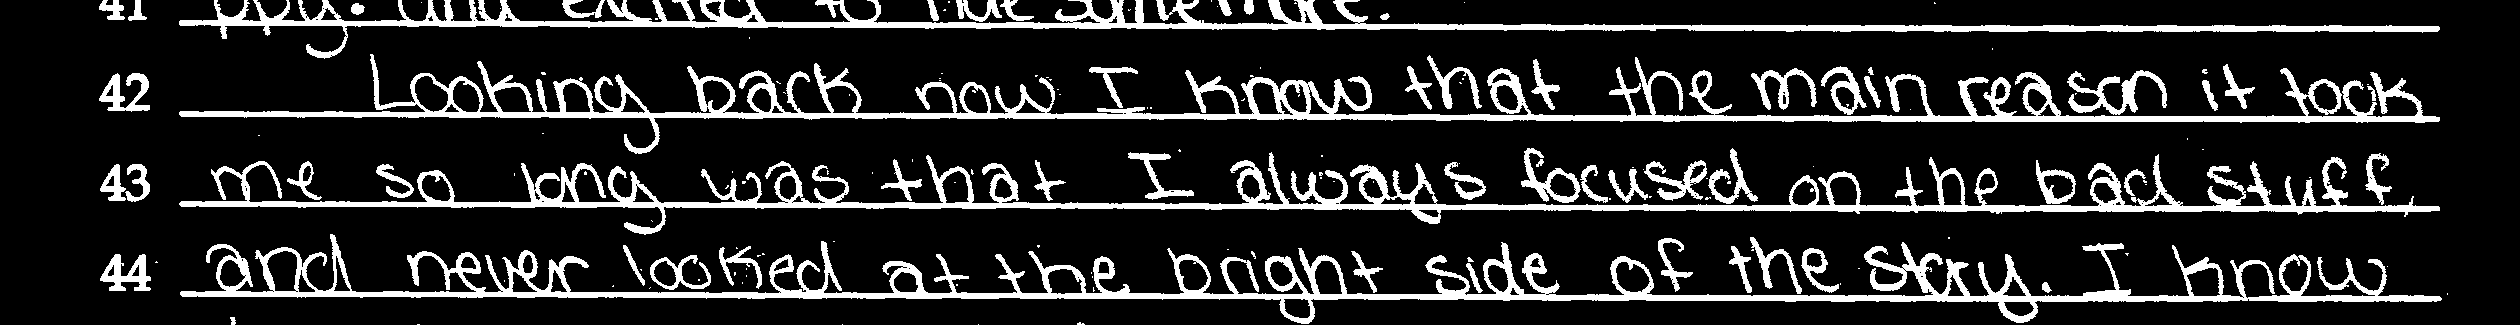 41 ppy. and excited to ride some more.
42 Looking back now I know that the main reason it took
43 me so long was that I always focused on the bad stuff,
44 and never looked at the bright side of the story. I know